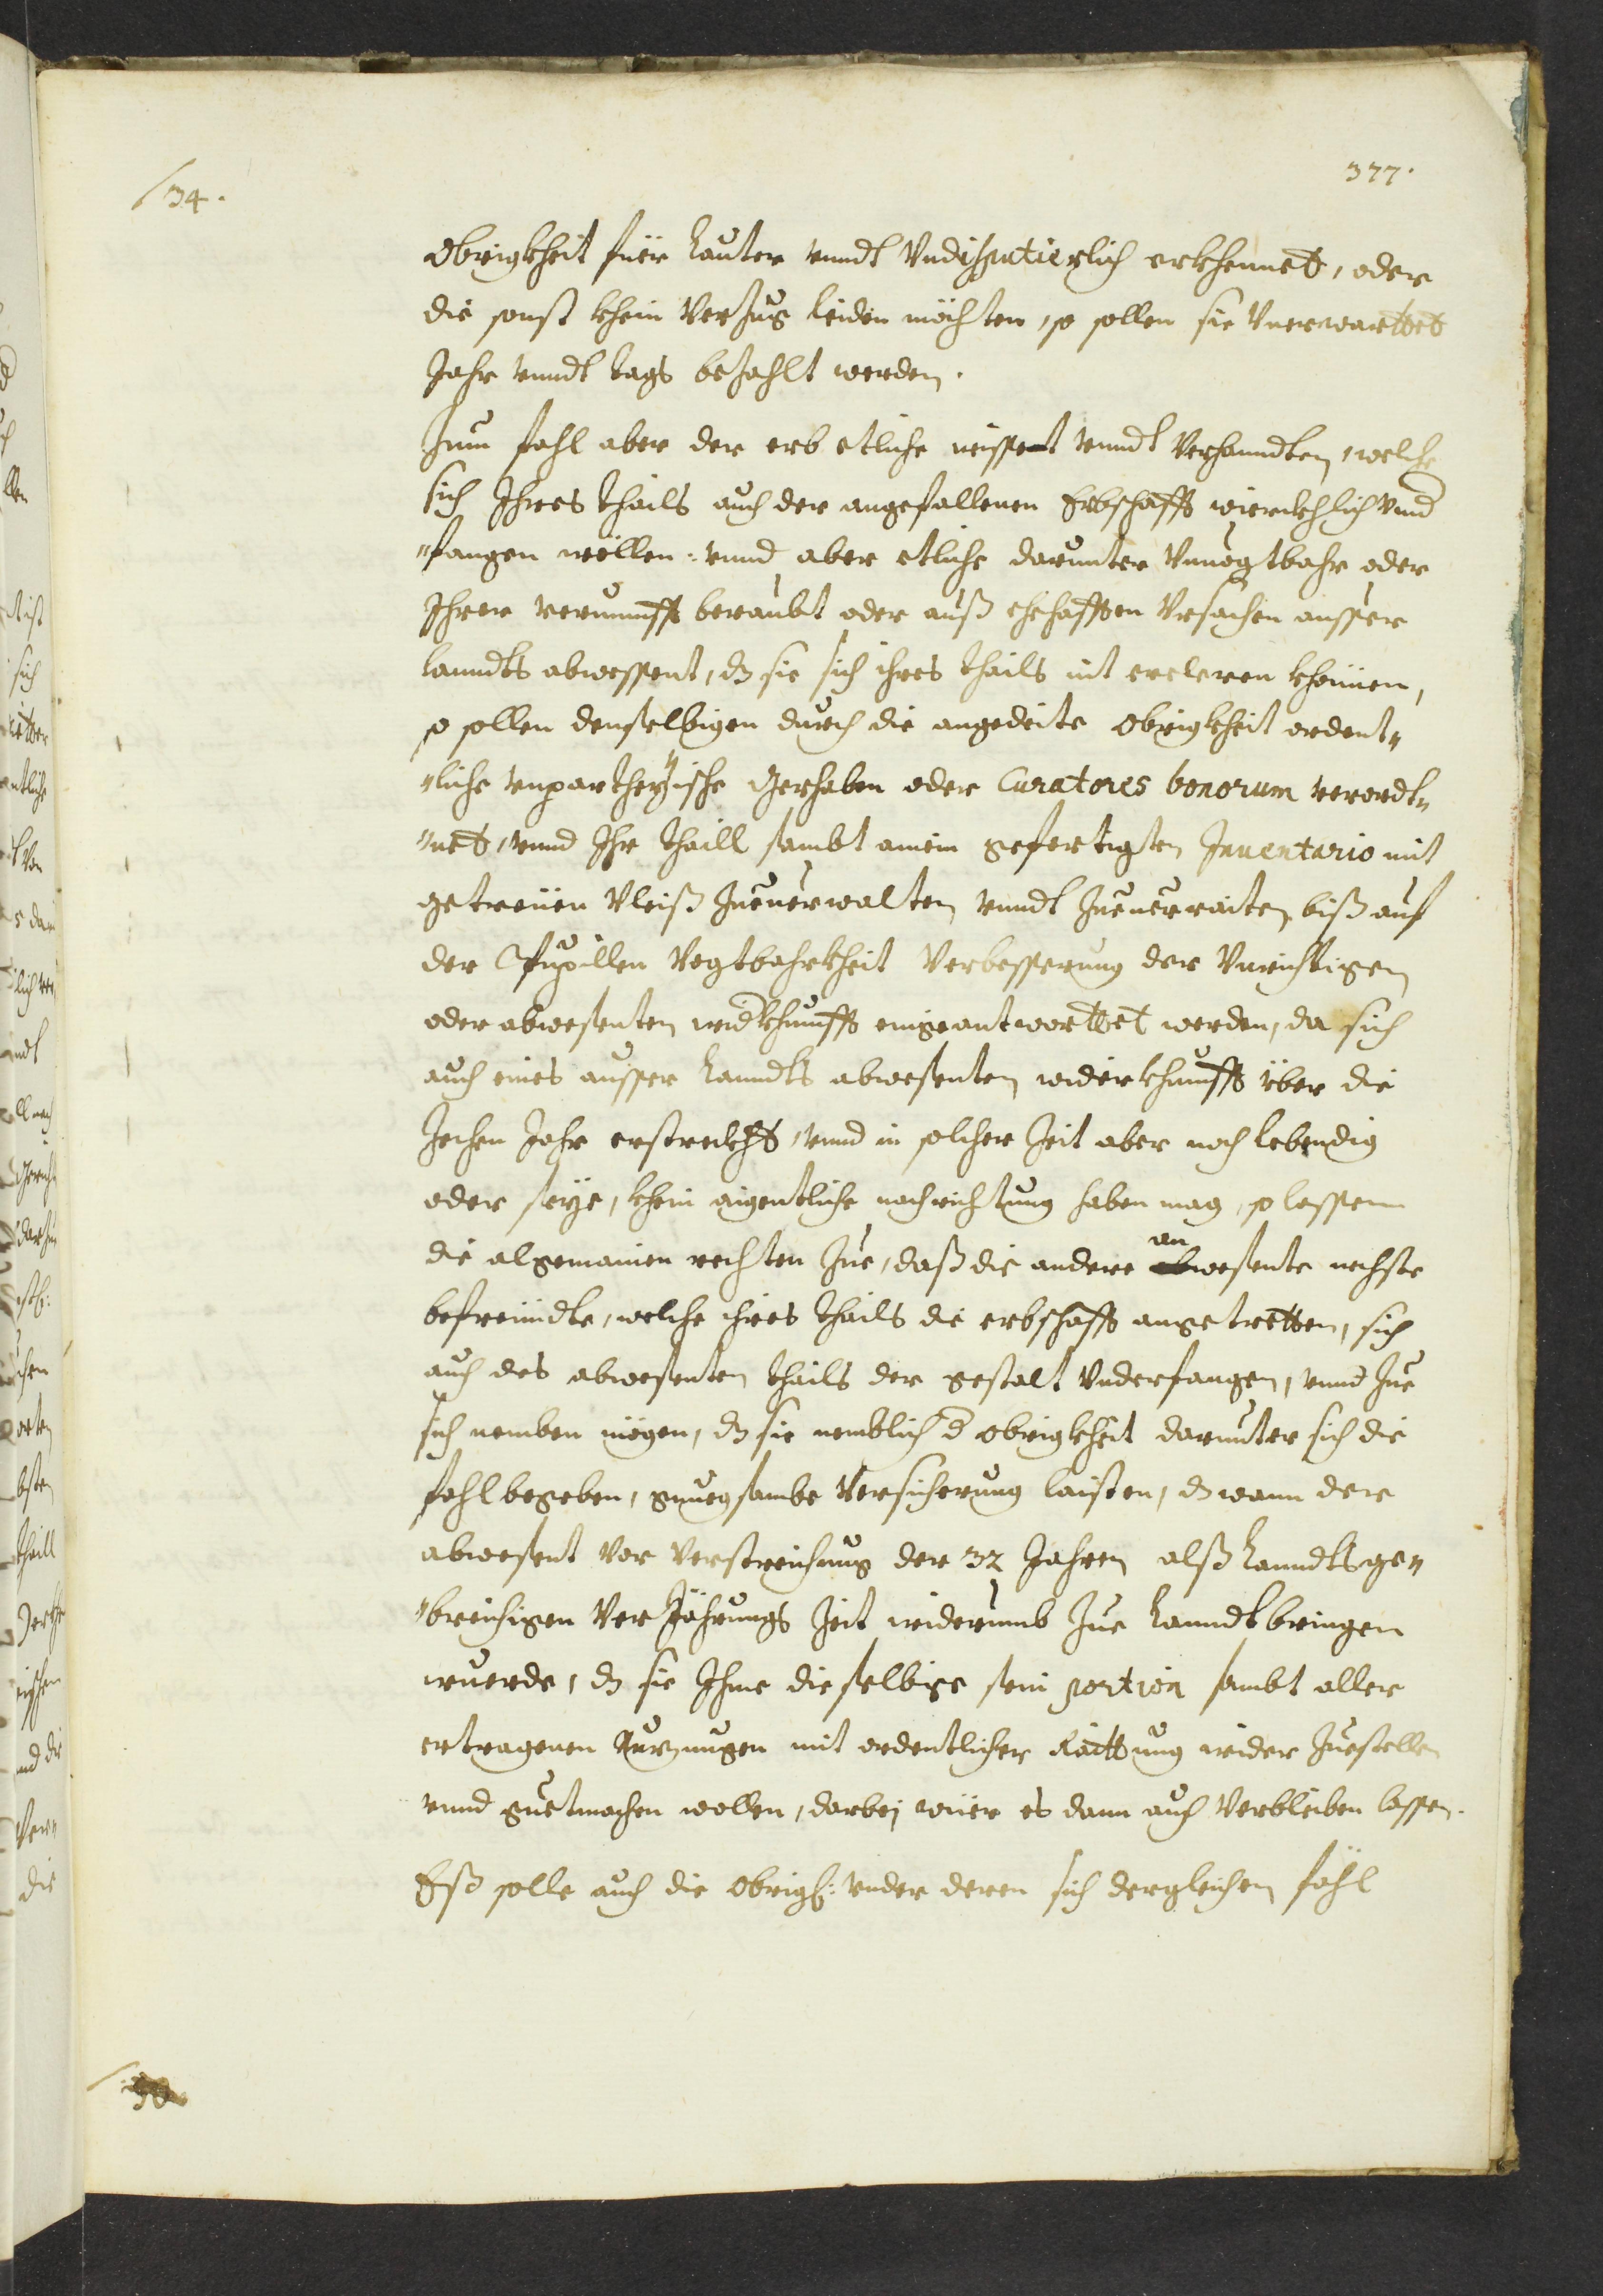 377.
/34.
Obrigkheit füer lauter vnndt Vndisputierlich erkhennet, oder
die sonst khein Verzug leiden möchten, so sollen sie Vnerwarttet
Jahr vnndt tags bezahlt werden.
Zum fahl aber der erb etliche weissent vnndt Verhanndten, welche
sich Ihres thails auch der angefallenen Erbschafft würckhlich vnd
"fangen wöllen: vnnd aber etliche darunter Vnuogtbahr oder
Ihrer vernunfft beraubt oder auß ehehafften Vrsachen ausser
lanndts abwessent, dz sie sich ihres thails nit ercleren khönnen,
so sollen denselbigen durch die angedeite Obrigkheit ordent„
„liche vnpartheyische Gerhaben oder Curatores bonorum verordt„
„net, vnnd Ihr thaill sambt ainem gefertigten Inuentario mit
getreüen Vleiß Zuuerwalten vnndt Zuuerraiten, biß auf
der Pupillen Vogtbahrkheit Verbesserung der Vnrichtigen
oder abwesenten widkhunfft eingeantworttet werden, da sich
auch eines ausser Lanndts abwesenten widerkhunfft über die
Zechen Jahr erstreckht, vnnd in solcher Zeit aber noch lebendig
oder seye, khein aigentliche nachrichtung haben mag, so lassen
die algemainen rechten Zue, daß die andere an
wesente nechste
befreündte, welche ihres thails die erbschafft angetretten, sich
auch des abwesenten thails der gestalt Vnderfangen, vnnd Zue
sich nemben mögen, dz sie nemblich d obrigkheit darunter sich die
fahl begeben, gnuegsambe Versicherung laisten, dz wann der
abwesent vor Verstreichung der 32 Jahren alß Lanndtsge„
„breichigen Verjährungs Zeit widerumb Zue Lanndt bringen
wuerde, dz sie Ihme dieselbige sein portion sambt aller
ertragenen Nuzungen mit ordentlicher Raittung wider Zuestellen
vnnd guetmachen wollen, darbej wüer es dann auch Verbleiben lassen.
Eß solle auch die Obrigkh: vnder deren sich dergleichen fähl